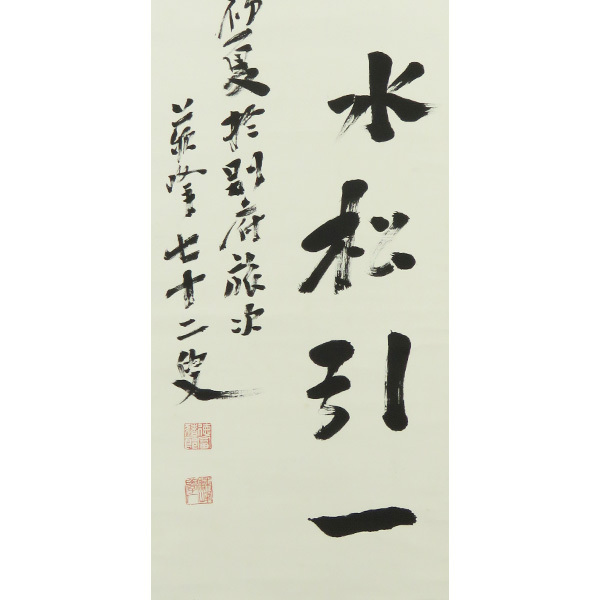 水松引一
夏於別府旅次
蘇峰七十二叟